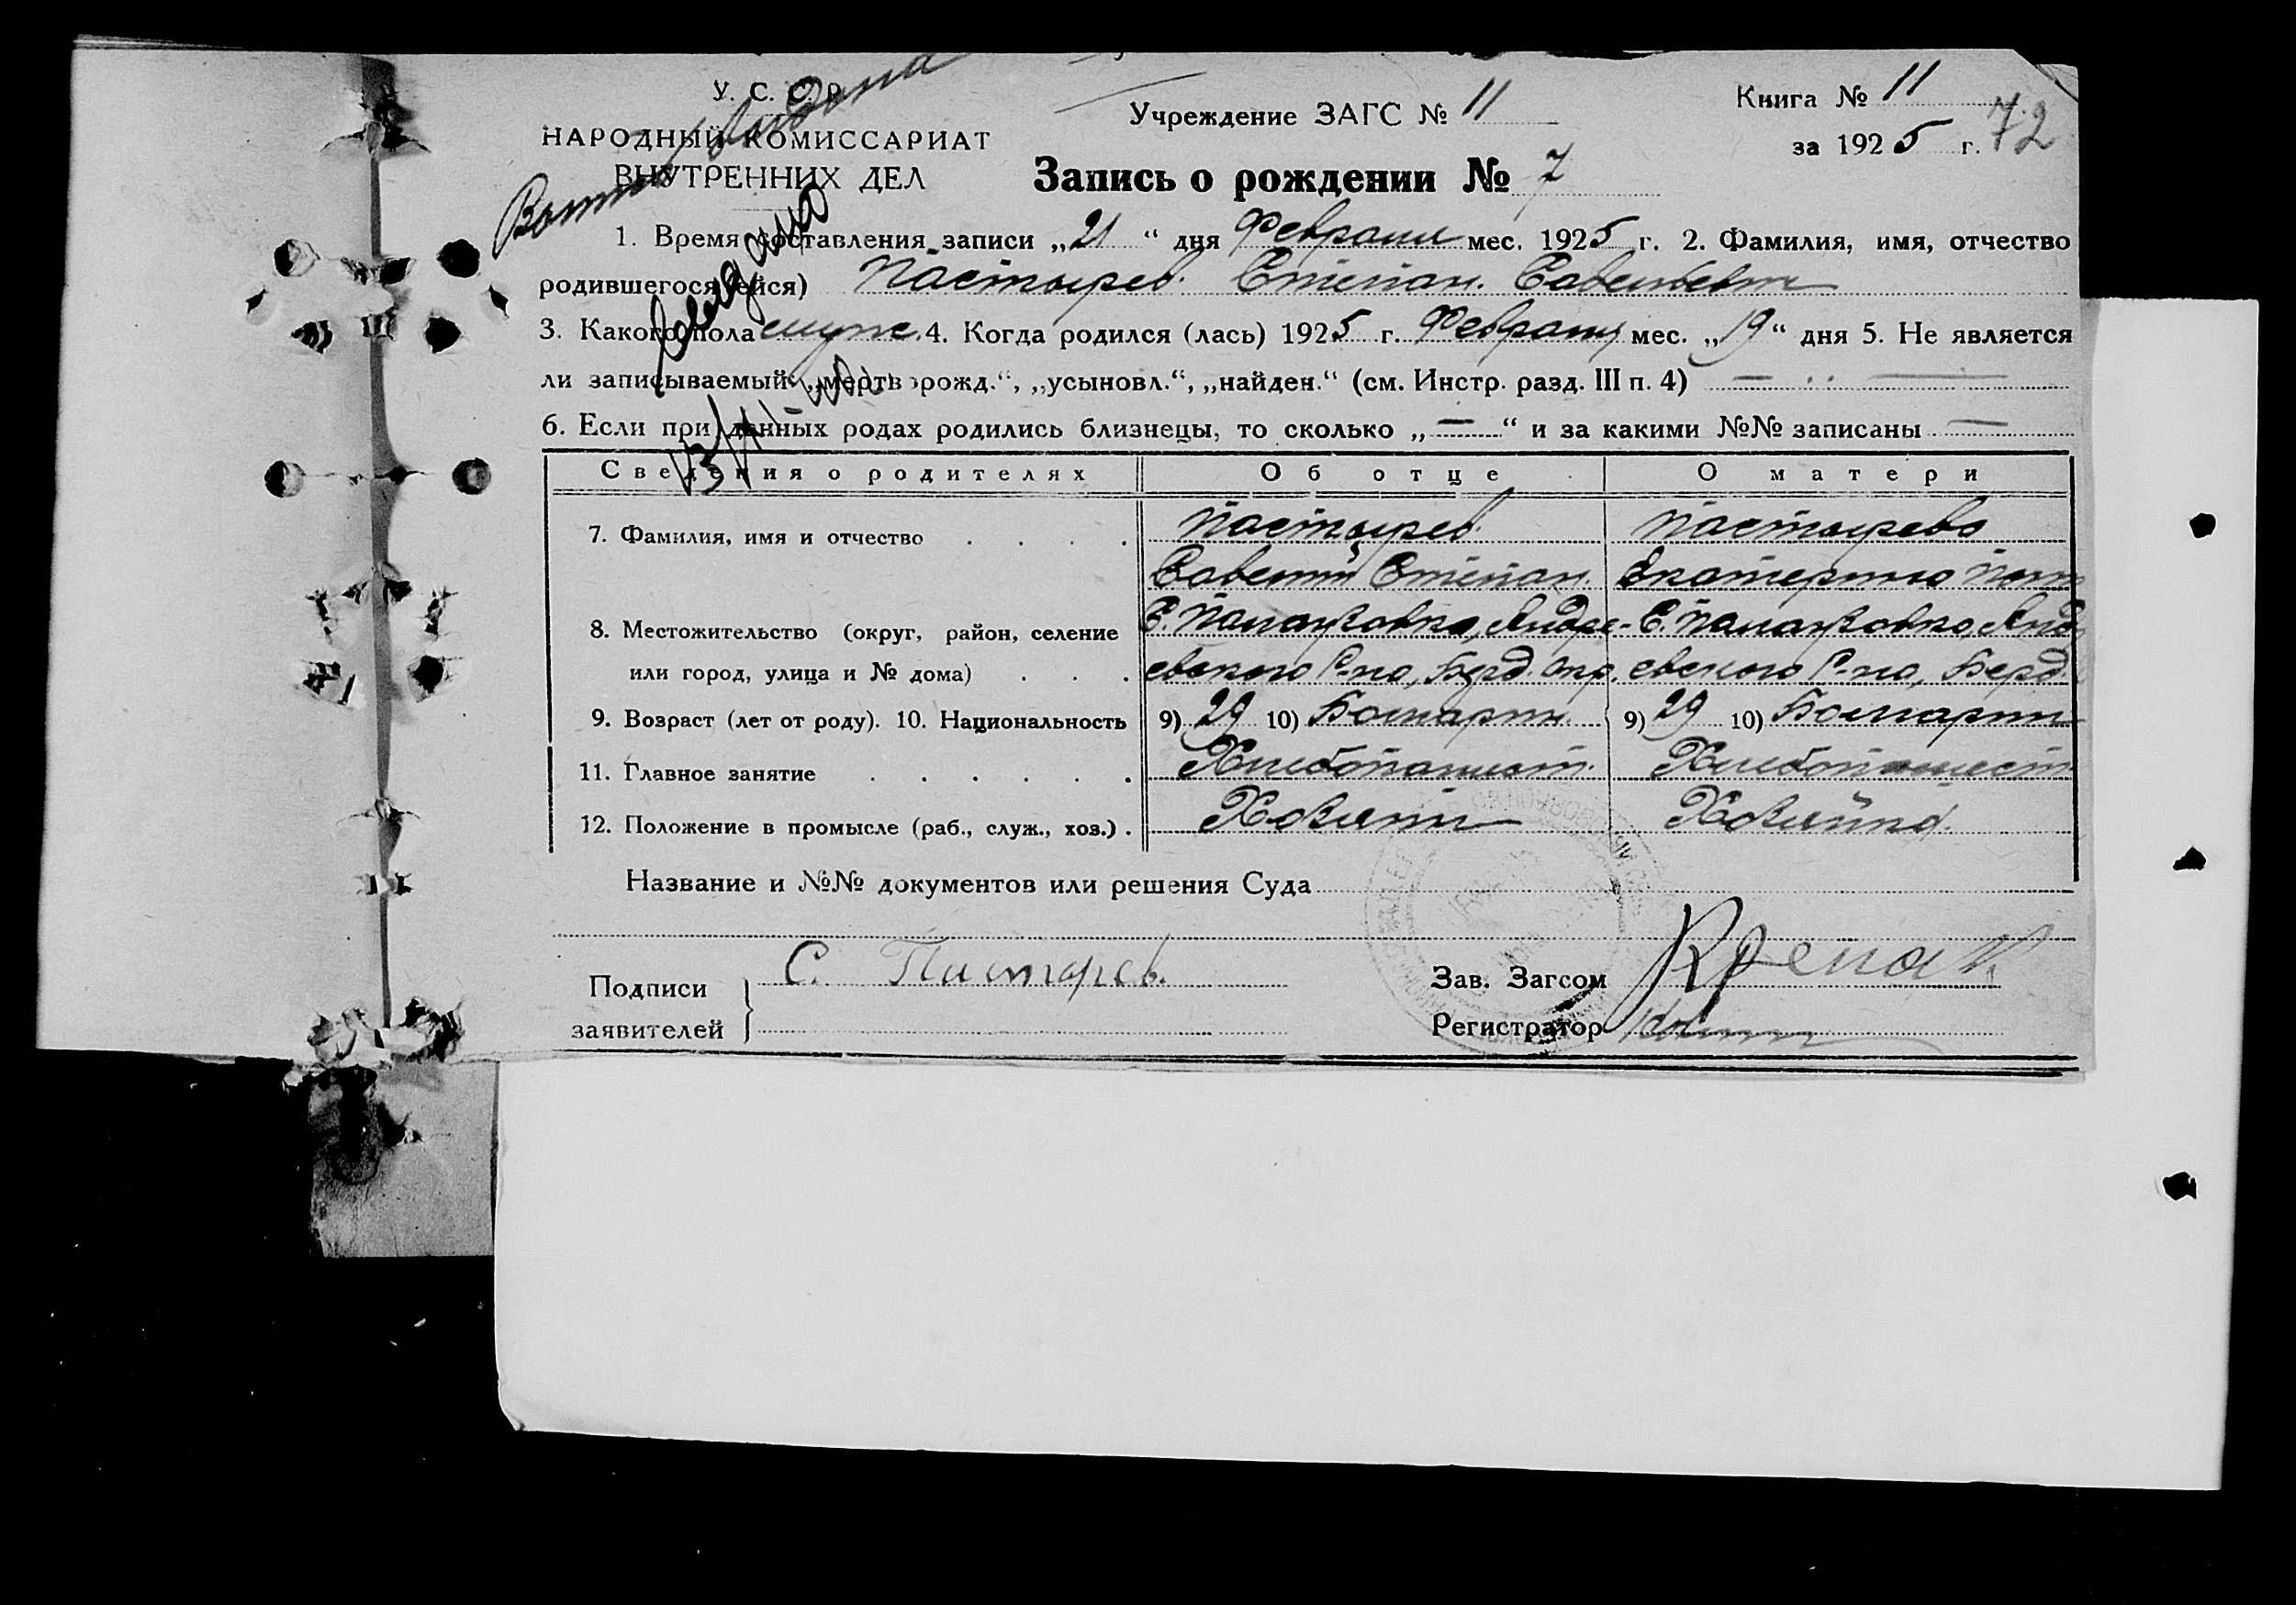 У. С. С. Р.
НАРОДНЫЙ КОМИССАРИАТ
ВНУТРЕННИХ ДЕЛ
Учреждение ЗАГС № 11
Книга № 11
за 1925 г. 72
Запись о рождении № 7
1. Время составления записи „21“ дня Февраля мес. 1925 г. 2. Фамилия, имя, отчество
родившегося(ейся) Пастырев Степан Савельевич
3. Какого пола муж. 4. Когда родился (лась) 1925 г. Февраля мес. „19“ дня 5. Не является
ли записываемый: „мертворожд.“, „усыновл.“, „найден.“ (см. Инстр. разд. III п. 4) —
6. Если при данных родах родились близнецы, то сколько „—“ и за какими №№ записаны —
Сведения о родителях Об отце О матери
7. Фамилия, имя и отчество . . . . Пастырев Пастырева
Савелий Степан. Екатерина
8. Местожительство (округ, район, селение С. Палаузовка, Андре- С. Палаузовка, Анд
или город, улица и № дома) . . . евского Р-на, Берд. окр. евского Р-на, Берд.
9. Возраст (лет от роду). 10. Национальность 9) 29 10) Болгарин 9) 29 10) Болгарин
11. Главное занятие . . . . . . Хлебопашест. Хлебопашест
12. Положение в промысле (раб., служ., хоз.) . Хозяин Хозяйка
Название и №№ документов или решения Суда
Подписи заявителей С. Пастарев.
Зав. Загсом
Регистратор